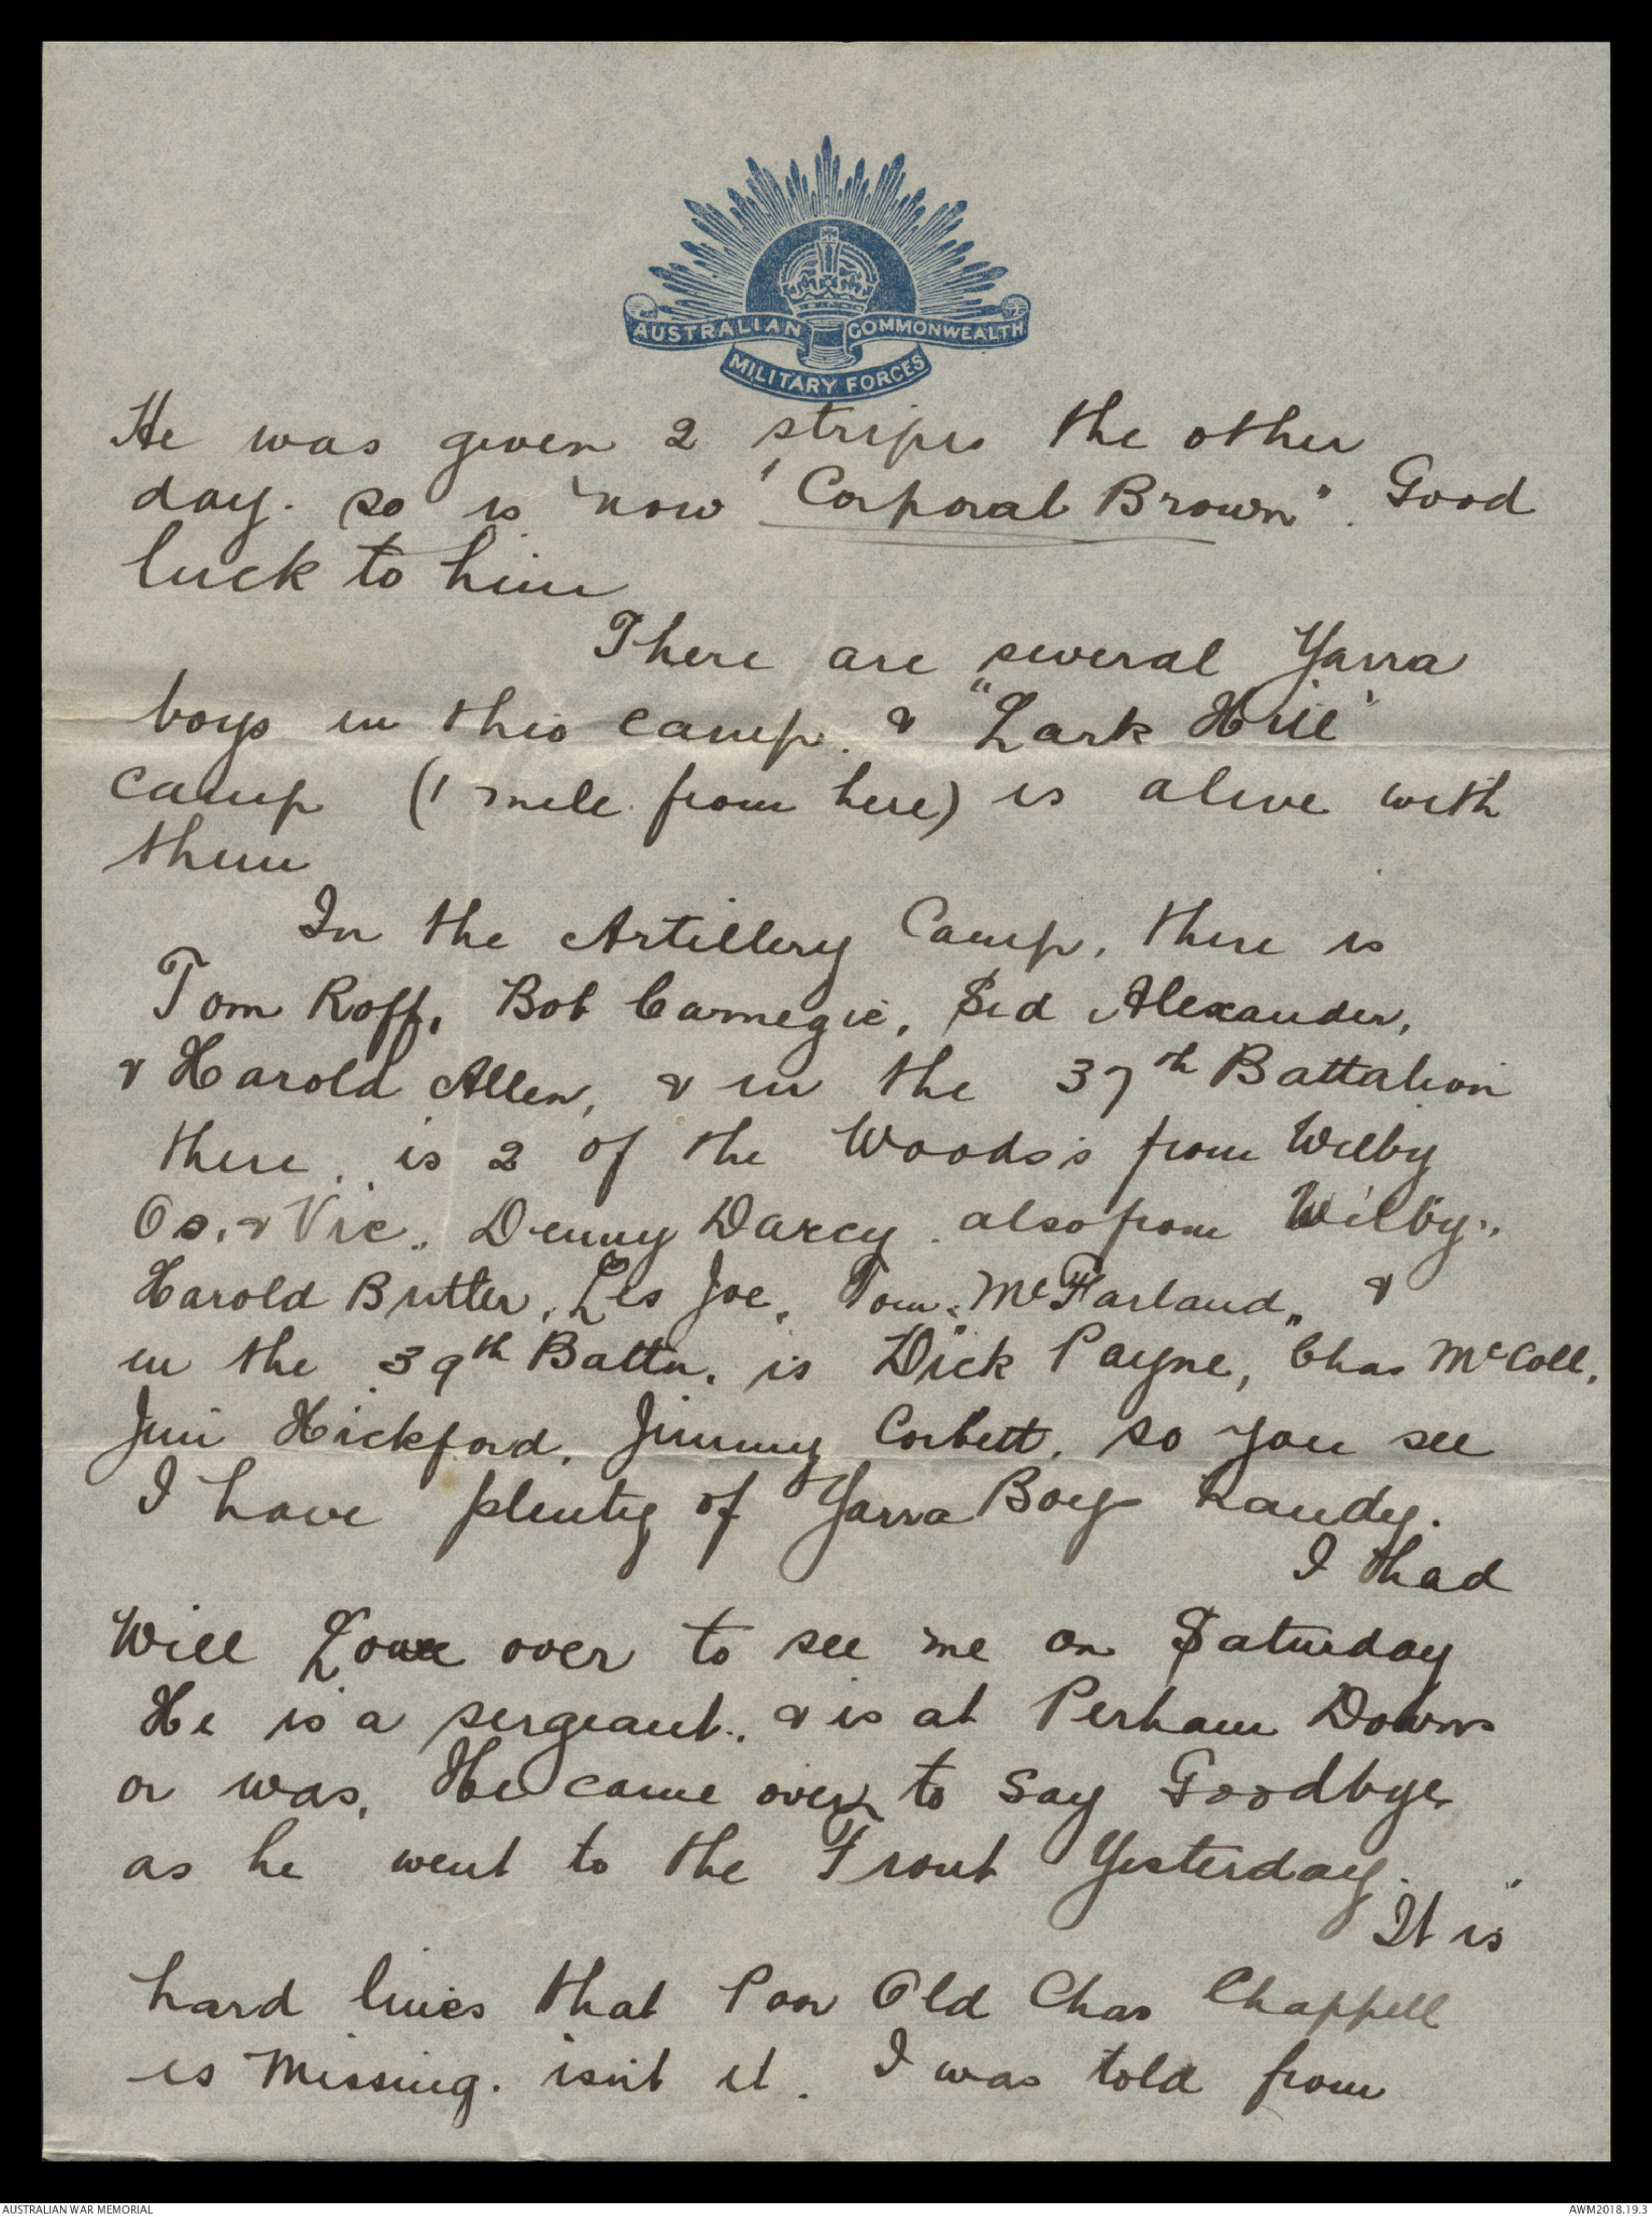 AUSTRALIAN COMMONWEALTH
MILITARY FORCES
He was given 2 stripes the other
day. so is now "Corporal Brown". Good
luck to him
There are several Yarra
boys in this camp. & "Lark Hill"
camp (1 mile from here) is alive with
them
In the Artillery Camp, there is
Tom Roff, Bob Carnegie, Sid Alexander,
& Harold Allen, & in the 37th Battalion
there is 2 of the Woods's from Wilby
Os. & Vic., Denny Darcy. also from Wilby.,
Harold Butler, Les Joe, Tom McFarland, &
in the 39th Battn. is Dick Payne, Chas McColl,
Jim Hickford, Jimmy Corbett, so you see
I have plenty of Yarra Boys handy.
I had
Will Lowe over to see me on Saturday
He is a sergeant., & is at Perham Downs
or was, He came over to say Goodbye
as he went to the Front Yesterday.
It is
hard lines that Poor Old Chas Chappell
is Missing. isn't it. I was told from
AUSTRALIAN WAR MEMORIAL
AWM2018.19.3